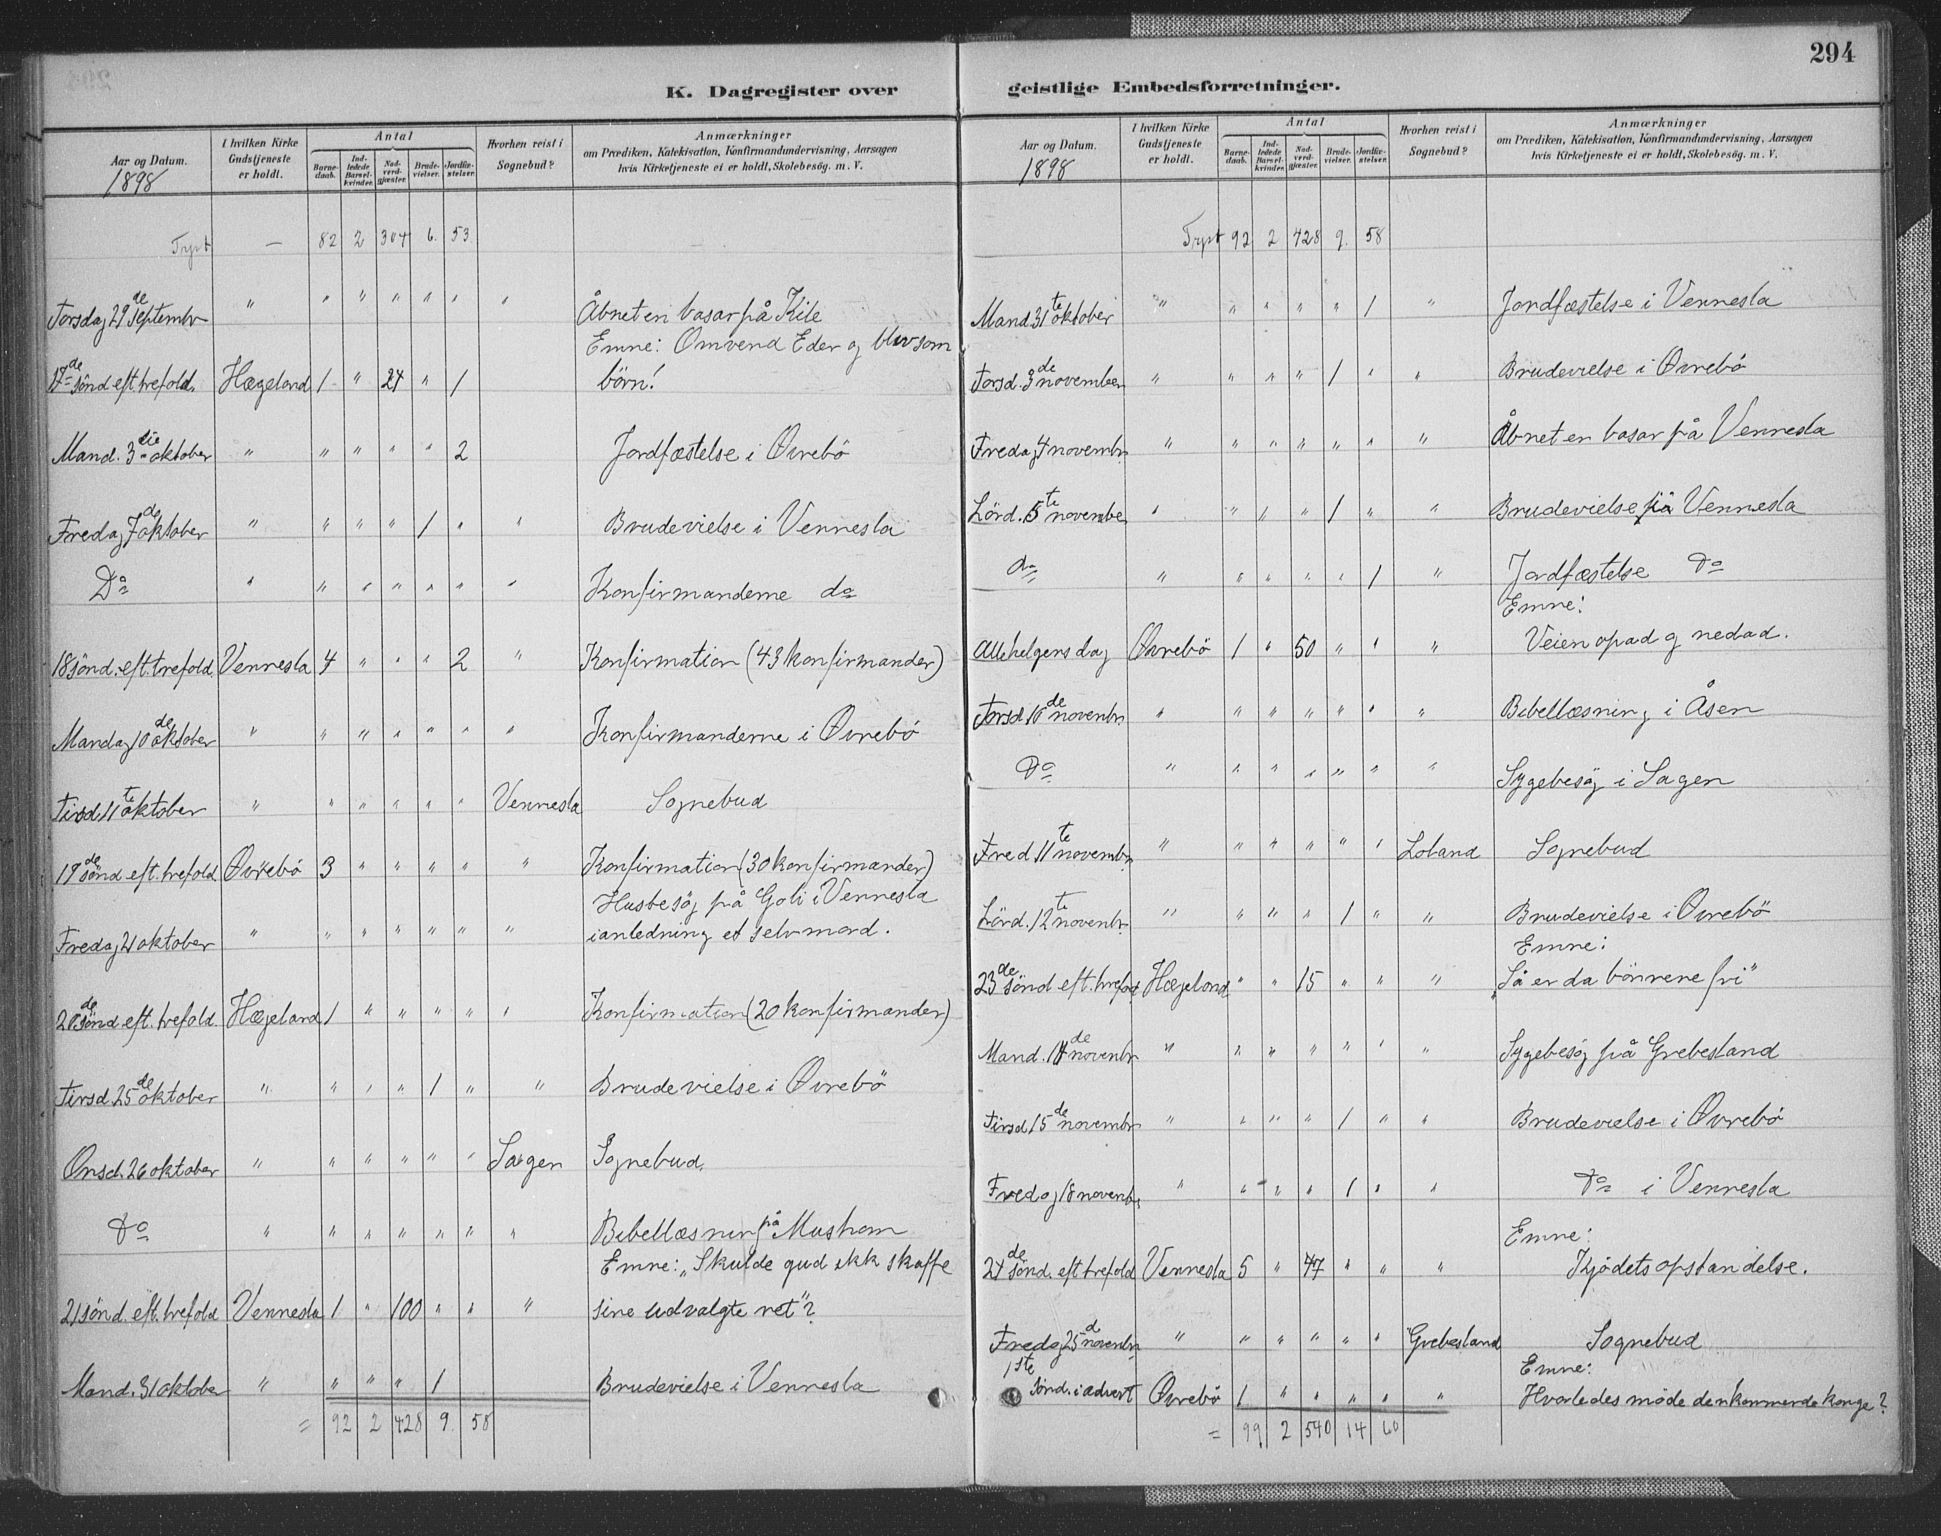 294
K. Dagregister over geistlige Embedsforretninger.
Aar og Datum. 1898 | I hvilken Kirke Gudstjeneste er holdt. | Antal: Barnedaab. | Indledede Barselkvinder. | Nadverdgjæster. | Brudevielser. | Jordfæstelser. | Hvorhen reist i Sognebud? | Anmærkninger om Prædiken, Katekisation, Konfirmandundervisning, Aarsagen hvis Kirketjeneste ei er holdt, Skolebesøg. m. V.
— 82 2 304 6. 53.
Torsdag 29de septembr " " " " " " " Åbnet en basar på Kile
Emne: Omvend Eder og bliv som
17de sönd eft. trefold. Hægeland 1 " 24 " 1 börn!
Mand. 3die oktober " " " " " 2 Jordfæstelse i Øvrebö
Fredag 7de oktober " " " " 1 " " Brudevielse i Vennesla
Do " " " " " " " Konfirmanderne do
18 sönd. eft. trefold. Vennesla 4 " " " 2 " Konfirmation (43 konfirmander)
Mandag 10de oktober " " " " " " " Konfirmanderne i Øvrebö
Tirsd. 11te oktober " " " " " " Vennesla Sognebud
19de sönd eft. trefold Øvrebö 3 " " " " " Konfirmation (30 konfirmander)
Husbesög på Goli i Vennesla
Fredag 21 oktober " " " " " " " i anledning et selvmord.
20de sönd eft. trefold. Hægeland 1 " " " " " Konfirmation (20 konfirmander)
Tirsd. 25de oktober " " " " 1 " " Brudevielse i Øvrebö
Onsd. 26 oktober " " " " " " Sagen Sognebud.
Do " " " " " " " Bibellæsning på Musham
Emne: „Skulde gud ikk skaffe
21 sönd. eft. trefold. Vennesla 1 " 100 " " " sine udvalgte ret"?
Mand. 31 oktober " " " " 1 Brudevielse i Vennesla
= 92 2 428 9. 58
Aar og Datum. 1898 | I hvilken Kirke Gudstjeneste er holdt. | Antal: Barnedaab. | Indledede Barselkvinder. | Nadverdgjæster. | Brudevielser. | Jordfæstelser. | Hvorhen reist i Sognebud? | Anmærkninger om Prædiken, Katekisation, Konfirmandundervisning, Aarsagen hvis Kirketjeneste ei er holdt, Skolebesøg. m. V.
92 2 428 9. 58
Mand 31te oktober " " " " " 1 " Jordfæstelse i Vennesla
Torsd. 3de november " " " " 1 " " Brudevielse i Øvrebö
Fredag 4 novembr. " " " " " " " Åbnet en basar på Vennesla
Lörd. 5te november " " " " 1 " " Brudevielse på Vennesla
do " " " " " 1 " Jordfæstelse Do
Emne:
Allehelgensdag Øvrebö 1 " 50 " " " Veien opad og nedad.
Torsd. 10de novembr. " " " " " " " Bibellæsning i Åsen
Do " " " " " " " Sygebesög i Sagen
Fred 11te novembr. " " " " " " Loland Sognebud
Lörd. 12te novembr. " " " " 1 " " Brudevielse i Øvrebö
Emne:
23de sönd eft. trefold Hægeland " " 15 " " " „Så er da börnene fri"
Mand. 14de novembr " " " " " " " Sygebesög på Grebesland
Tirsd 15de novembr " " " " 1 " " Brudevielse i Øvrebö
Fredag 18 novembr " " " " 1 " " Do i Vennesla
Emne:
24de sönd. eft trefold Vennesla 5 " 47 " " " Kjödets opstandelse.
Fredag 25d novembr. " " " " " " Grebesland Sognebud
Emne:
1ste Sönd. i advent Øvrebö 1 " " " " " Hvorledes möde den kommende konge?
= 99 2 540 14 60